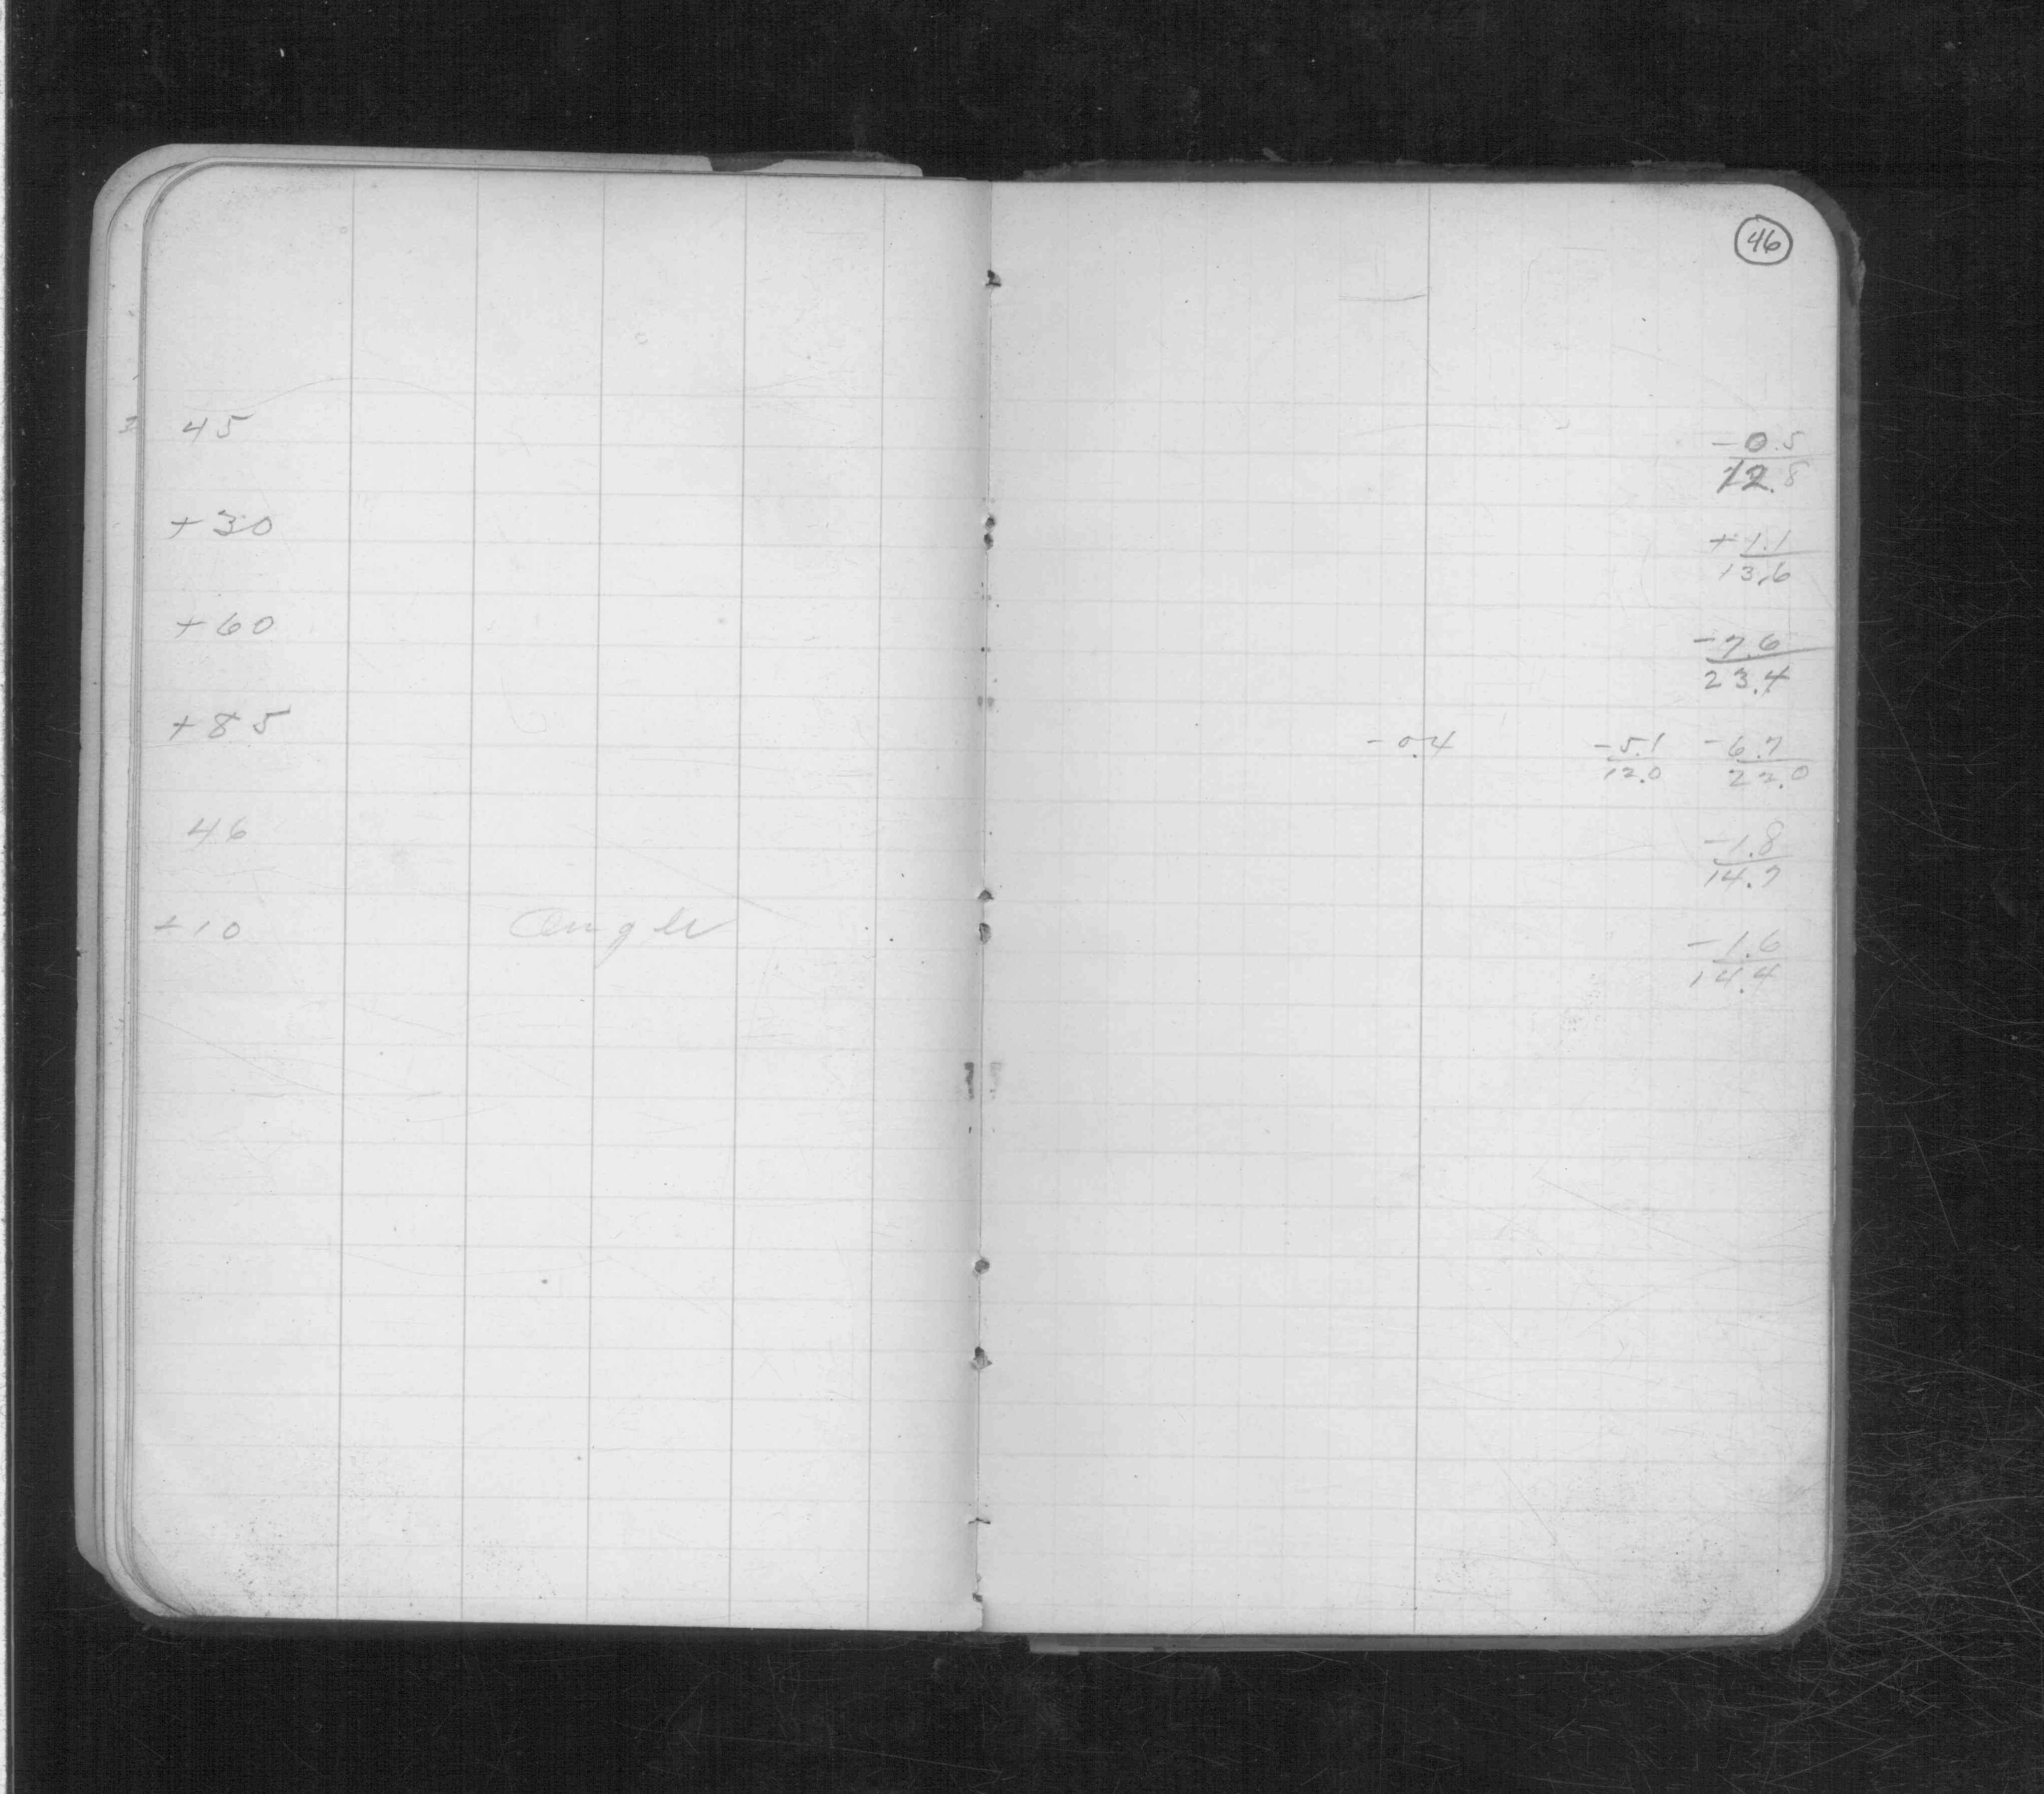 46
45
-0.5
12.8
+30
+1.1
13.6
+60
-7.6
23.4
+85 -0.4 -5.1 -6.7
12.0 22.0
46
-1.8
14.7
+10 Angle
-1.6
14.4